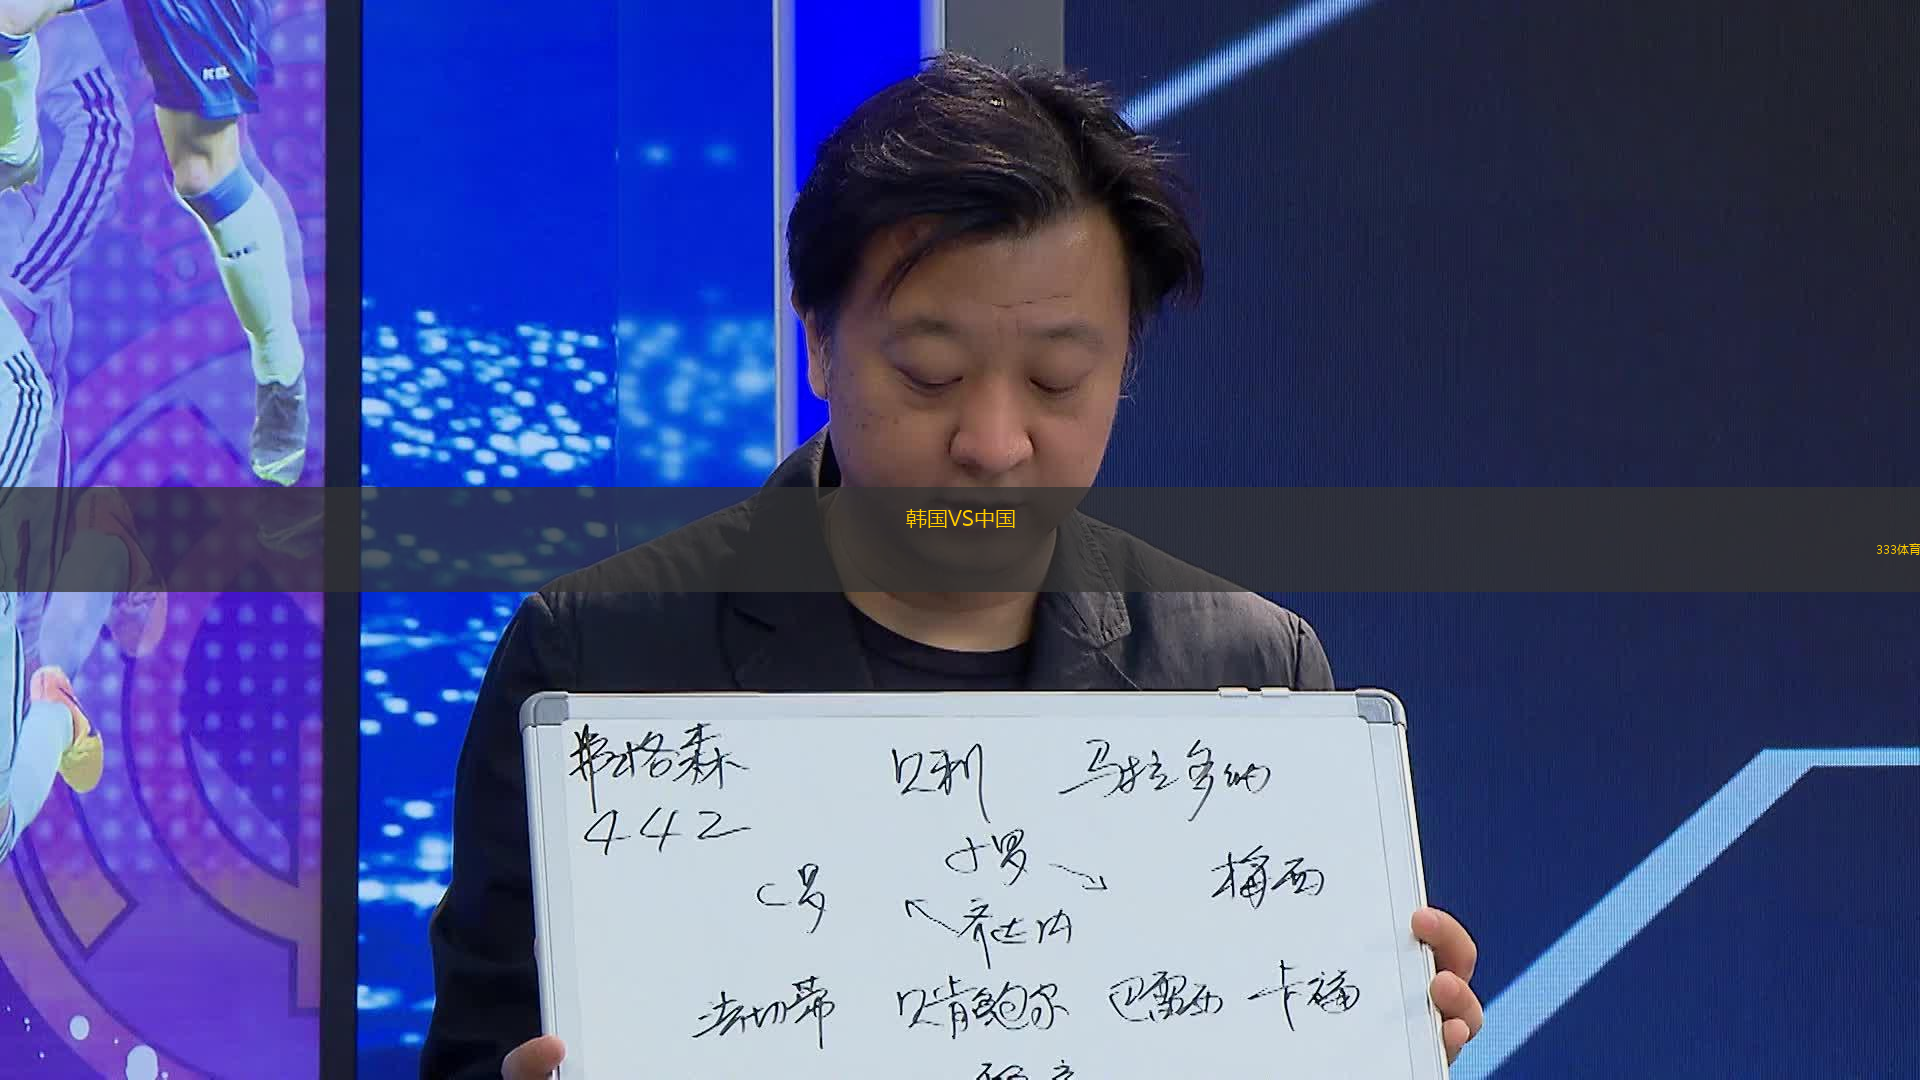 韩国VS中国
333体育
弗格森 贝利 马拉多纳
442
小罗
C罗 梅西
齐达内
法切蒂 贝肯鲍尔 巴雷西 卡福